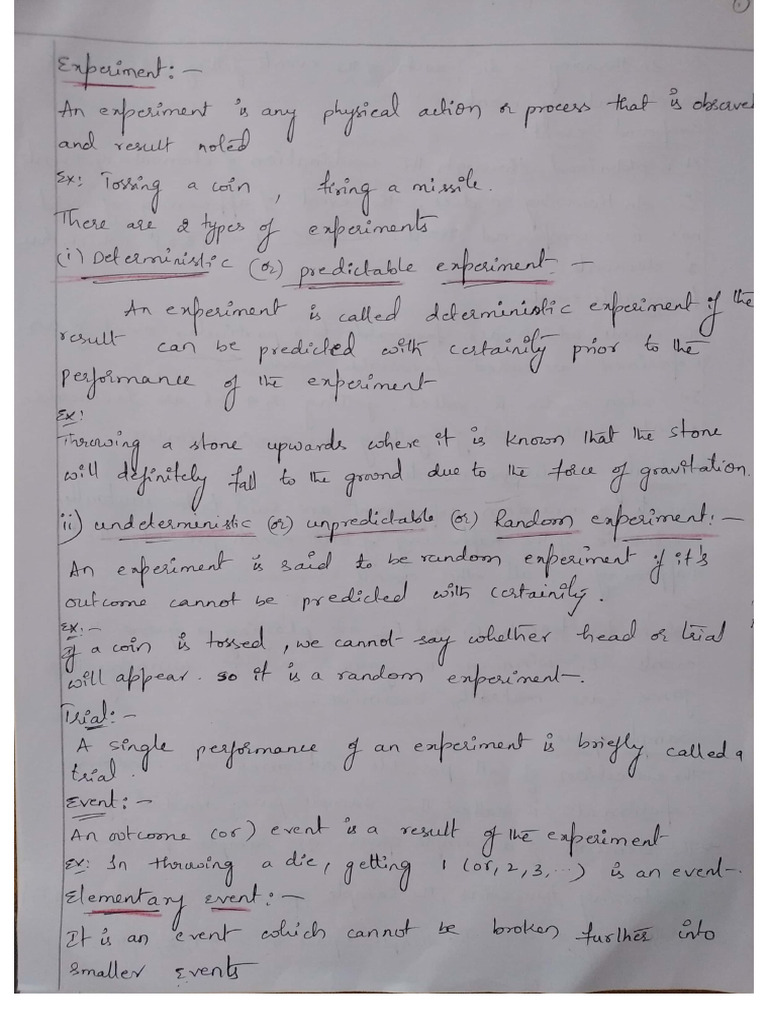 1
Experiment:-
An experiment is any physical action or process that is observed
and result noted
Ex: Tossing a coin, firing a missile.
There are 2 types of experiments
(i) Deterministic (or) predictable experiment:-
An experiment is called deterministic experiment if the
result can be predicted with certainily prior to the
performance of the experiment
Ex:
Throwing a stone upwards where it is known that the stone
will definitely fall to the ground due to the force of gravitation.
ii) undeterministic (or) unpredictable (or) Random experiment:-
An experiment is said to be random experiment if it's
outcome cannot be predicted with certainily.
Ex:-
If a coin is tossed, we cannot say whether head or trial
will appear. so it is a random experiment.
Trial:-
A single performance of an experiment is briefly called a
trial.
Event:-
An outcome (or) event is a result of the experiment
Ex: In throwing a die, getting 1 (or, 2, 3, ...) is an event.
Elementary event:-
It is an event which cannot be broken further into
smaller events